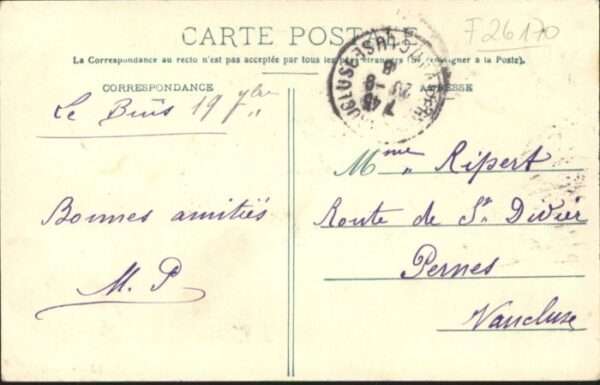 CARTE POSTALE
F26170
La Correspondance au recto n'est pas acceptée par tous les pays étrangers (Se renseigner à la Poste).
CORRESPONDANCE
ADRESSE
Le Buis 19 7bre
Bonnes amitiés
M. P
Mme Ripert
Route de St Didier
Pernes
Vaucluse
VAUCLUSE
7 45
20 - 9